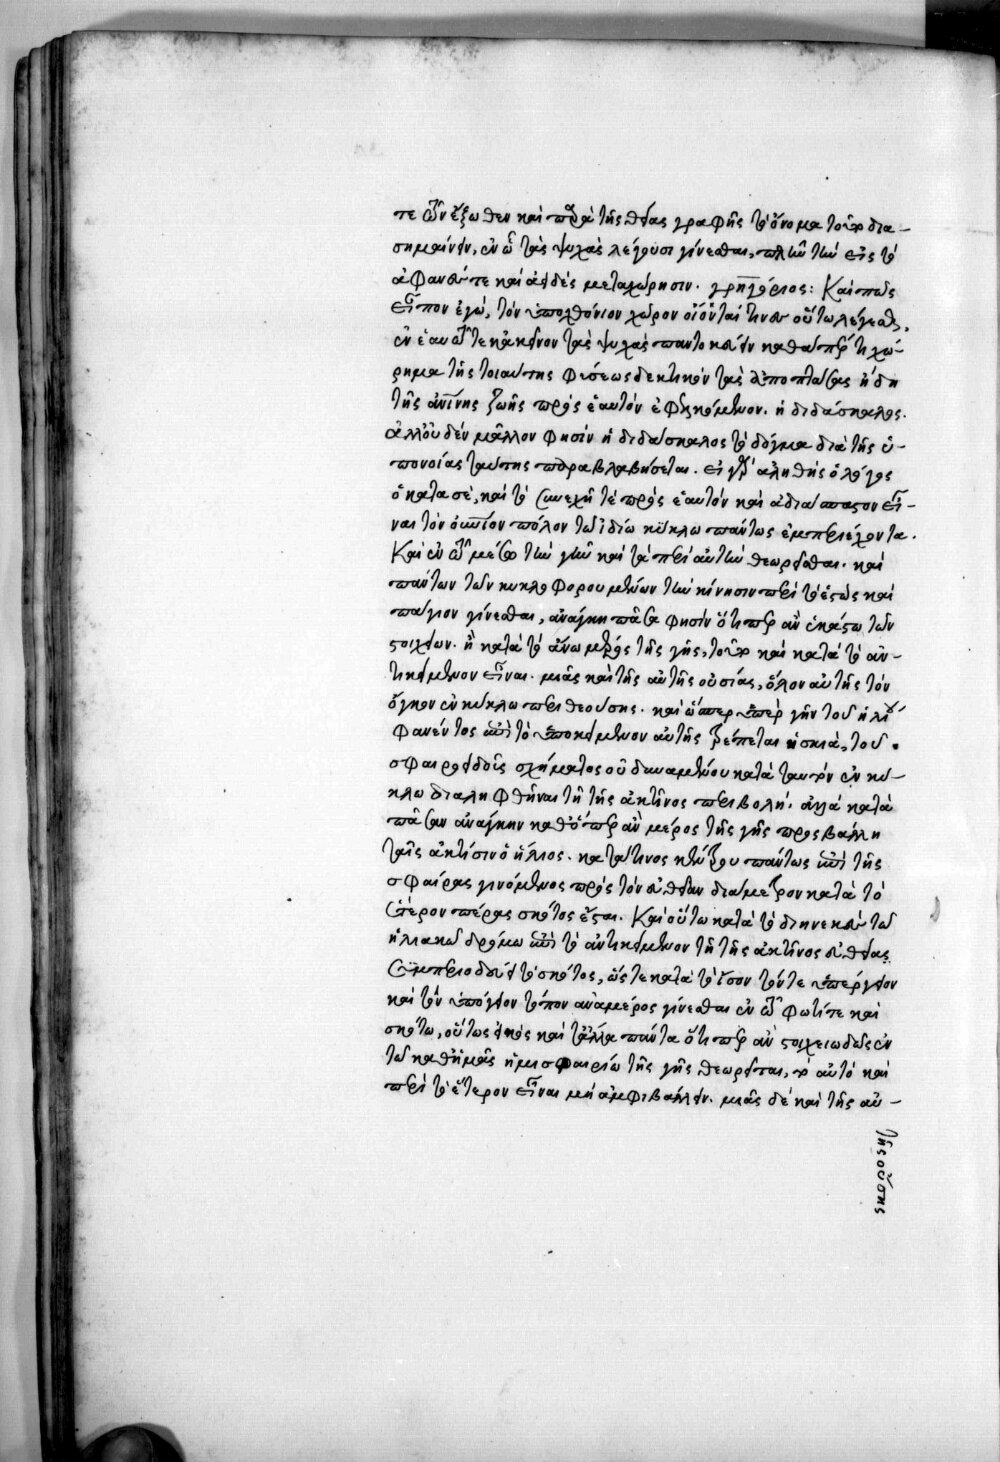 τε τῶν ἔξωθεν καὶ παρὰ τῆς θείας γραφῆς τὸ ὄνομα τοῦτο δια-
σημαίνειν, ἐν ὧ τὰς ψυχὰς λέγουσι γίνεσθαι, πλὴν τὴν εἰς τὸ
ἀφανές τε καὶ ἀειδὲς μεταχώρησιν. γρηγόριος: Καὶ πῶς
εἶπον ἐγώ, τὸν ὑποχθόνιον χῶρον οἴονταί τινες οὕτω λέγεσθαι,
ἐν ἑαυτῶ τε κἀκεῖνον τὰς ψυχὰς πανδοκεύειν καθάπερ τι χώ-
ρημα τῆς τοιαύτης φύσεως δεκτικὸν τὰς ἀποπτάσας ἤδη
τῆς ἀνθρωπίνης ζωῆς πρὸς ἑαυτὸν ἐφελκόμενον. ἡ διδάσκαλος.
ἀλλ' οὐδὲν μᾶλλον φησὶν ἡ διδάσκαλος τὸ δόγμα διὰ τῆς ὑ-
πονοίας ταύτης παραβλαβήσεται. εἰ γὰρ ἀληθὴς ὁ λόγος
ὁ κατὰ σὲ, καὶ τὸ συνεχῆ τε πρὸς ἑαυτὸν καὶ ἀδιάσπαστον εἶ-
ναι τὸν οὐράνιον πόλον τῶ ἰδίω κύκλω πάντως ἐμπεριέχοντα.
Καὶ ἐν τῶ μέσω τὴν γῆν καὶ τὰ περὶ αὐτὴν θεωρεῖσθαι. καὶ
πάντων τῶν κυκλοφορουμένων τὴν κίνησιν περὶ τὸ ἑστὼς καὶ
πάγιον γίνεσθαι, ἀνάγκη πᾶσα φησὶν ὅτιπερ ἂν ἑκάστω τῶν
στοιχείων. ἢ κατὰ τὸ ἄνω μέρος τῆς γῆς, τοῦτο καὶ κατὰ τὸ ἀν-
τικείμενον εἶναι. μιᾶς καὶ τῆς αὐτῆς οὐσίας, ὅλον αὐτῆς τὸν
ὄγκον ἐν κύκλω περιθεούσης. καὶ ὥσπερ ὑπὲρ γῆν τοῦ ἡλίου
φανέντος ἐπὶ τὸ ὑποκείμενον αὐτῆς τρέπεται ἡ σκιὰ, τοῦ
σφαιροειδοῦς σχήματος οὐ δυναμένου κατὰ ταυτὸν ἐν κύ-
κλω διαληφθῆναι τῆ τῆς ἀκτῖνος περιβολῆ. ἀλλὰ κατὰ
πᾶσαν ἀνάγκην καθόπερ ἂν μέρος τῆς γῆς προσβάλλη
ταῖς ἀκτίσιν ὁ ἥλιος. κατά τινος κέντρου πάντως ἐπὶ τῆς
σφαίρας γινόμενος πρὸς τὸν εὐθεῖαν διάμετρον κατὰ τὸ
ἕτερον πέρας σκότος ἔσται. Καὶ οὕτω κατὰ τὸ διηνεκὲς τῶ
ἡλιακῶ δρόμω ἐπὶ τὸ ἀντικείμενον τῆ τῆς ἀκτῖνος εὐθείας
συμπεριοδεύει τὸ σκότος, ὥστε κατὰ τὸ ἴσον τόν τε ὑπέργειον
καὶ τὸν ὑπόγειον τόπον ἀναμέρος γίνεσθαι ἐν τῶ φωτί τε καὶ
σκότω, οὕτως εἰκὸς καὶ τἄλλα πάντα ὅτιπερ ἂν στοιχειωδῶς ἐν
τῶ καθ' ἡμᾶς ἡμισφαιρίω τῆς γῆς θεωρεῖται, τὸ αὐτὸ καὶ
περὶ τὸ ἕτερον εἶναι μὴ ἀμφιβάλλειν. μιᾶς δὲ καὶ τῆς αὐ-
τῆς οὔσης